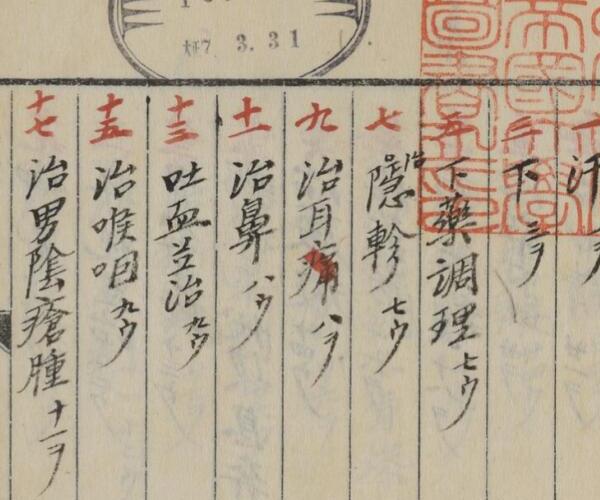 大正7 3.31
一 汗
三 下 三ヲ
五 下藥調理 七ウ
七 治隱軫 七ウ
九 治耳痛 八ヲ
十一 治鼻 八ウ
十三 吐血並治 九ウ
十五 治喉咽 九ウ
十七 治男陰瘡腫 十一ヲ